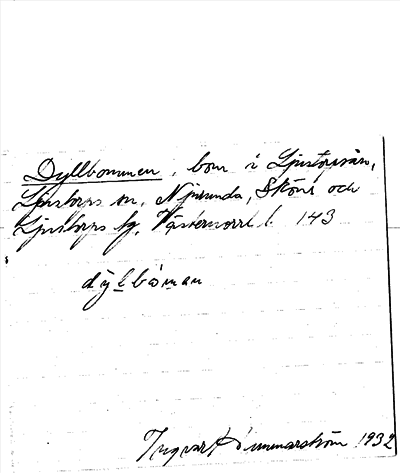 Dyllbommen, bom i Ljustorpsån,
Ljustorps sn, Njurunda, Sköns och
Ljustorps tg, Västernorrl. l. 143
dy̆l bòman
Ingvar Hammarström 1932